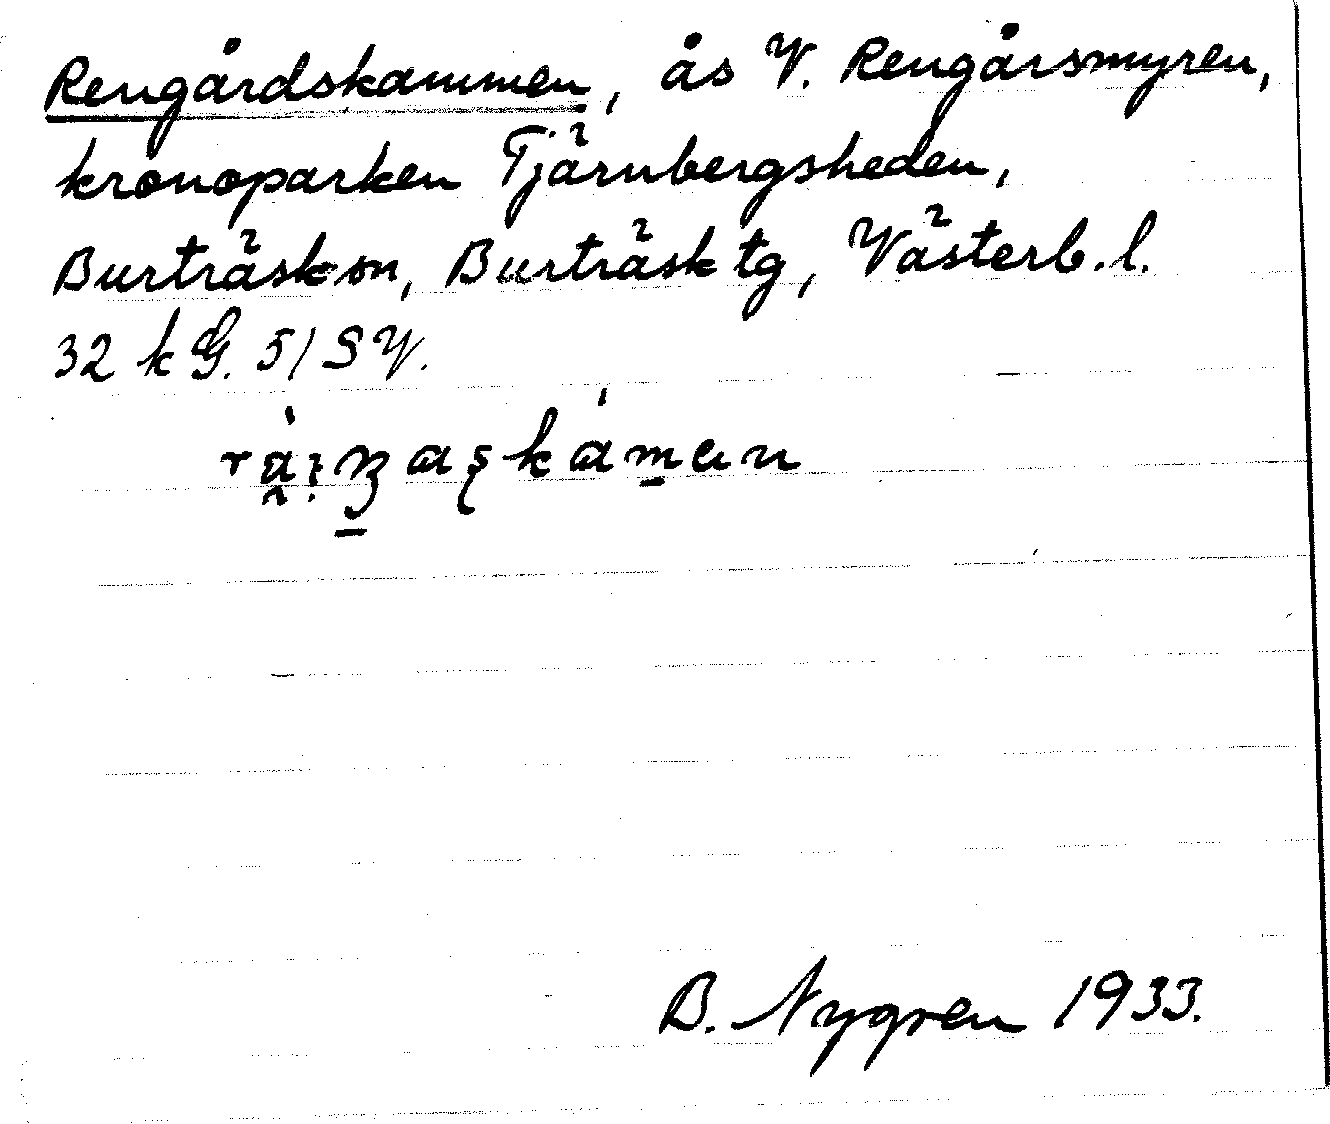 Rengårdskammen, ås V. Rengårsmyren,
kronoparken Tjärnbergsheden,
Burträsk sn, Burträsk tg, Västerb. l.
32 k G. 5/SV.
B. Nygren 1933.